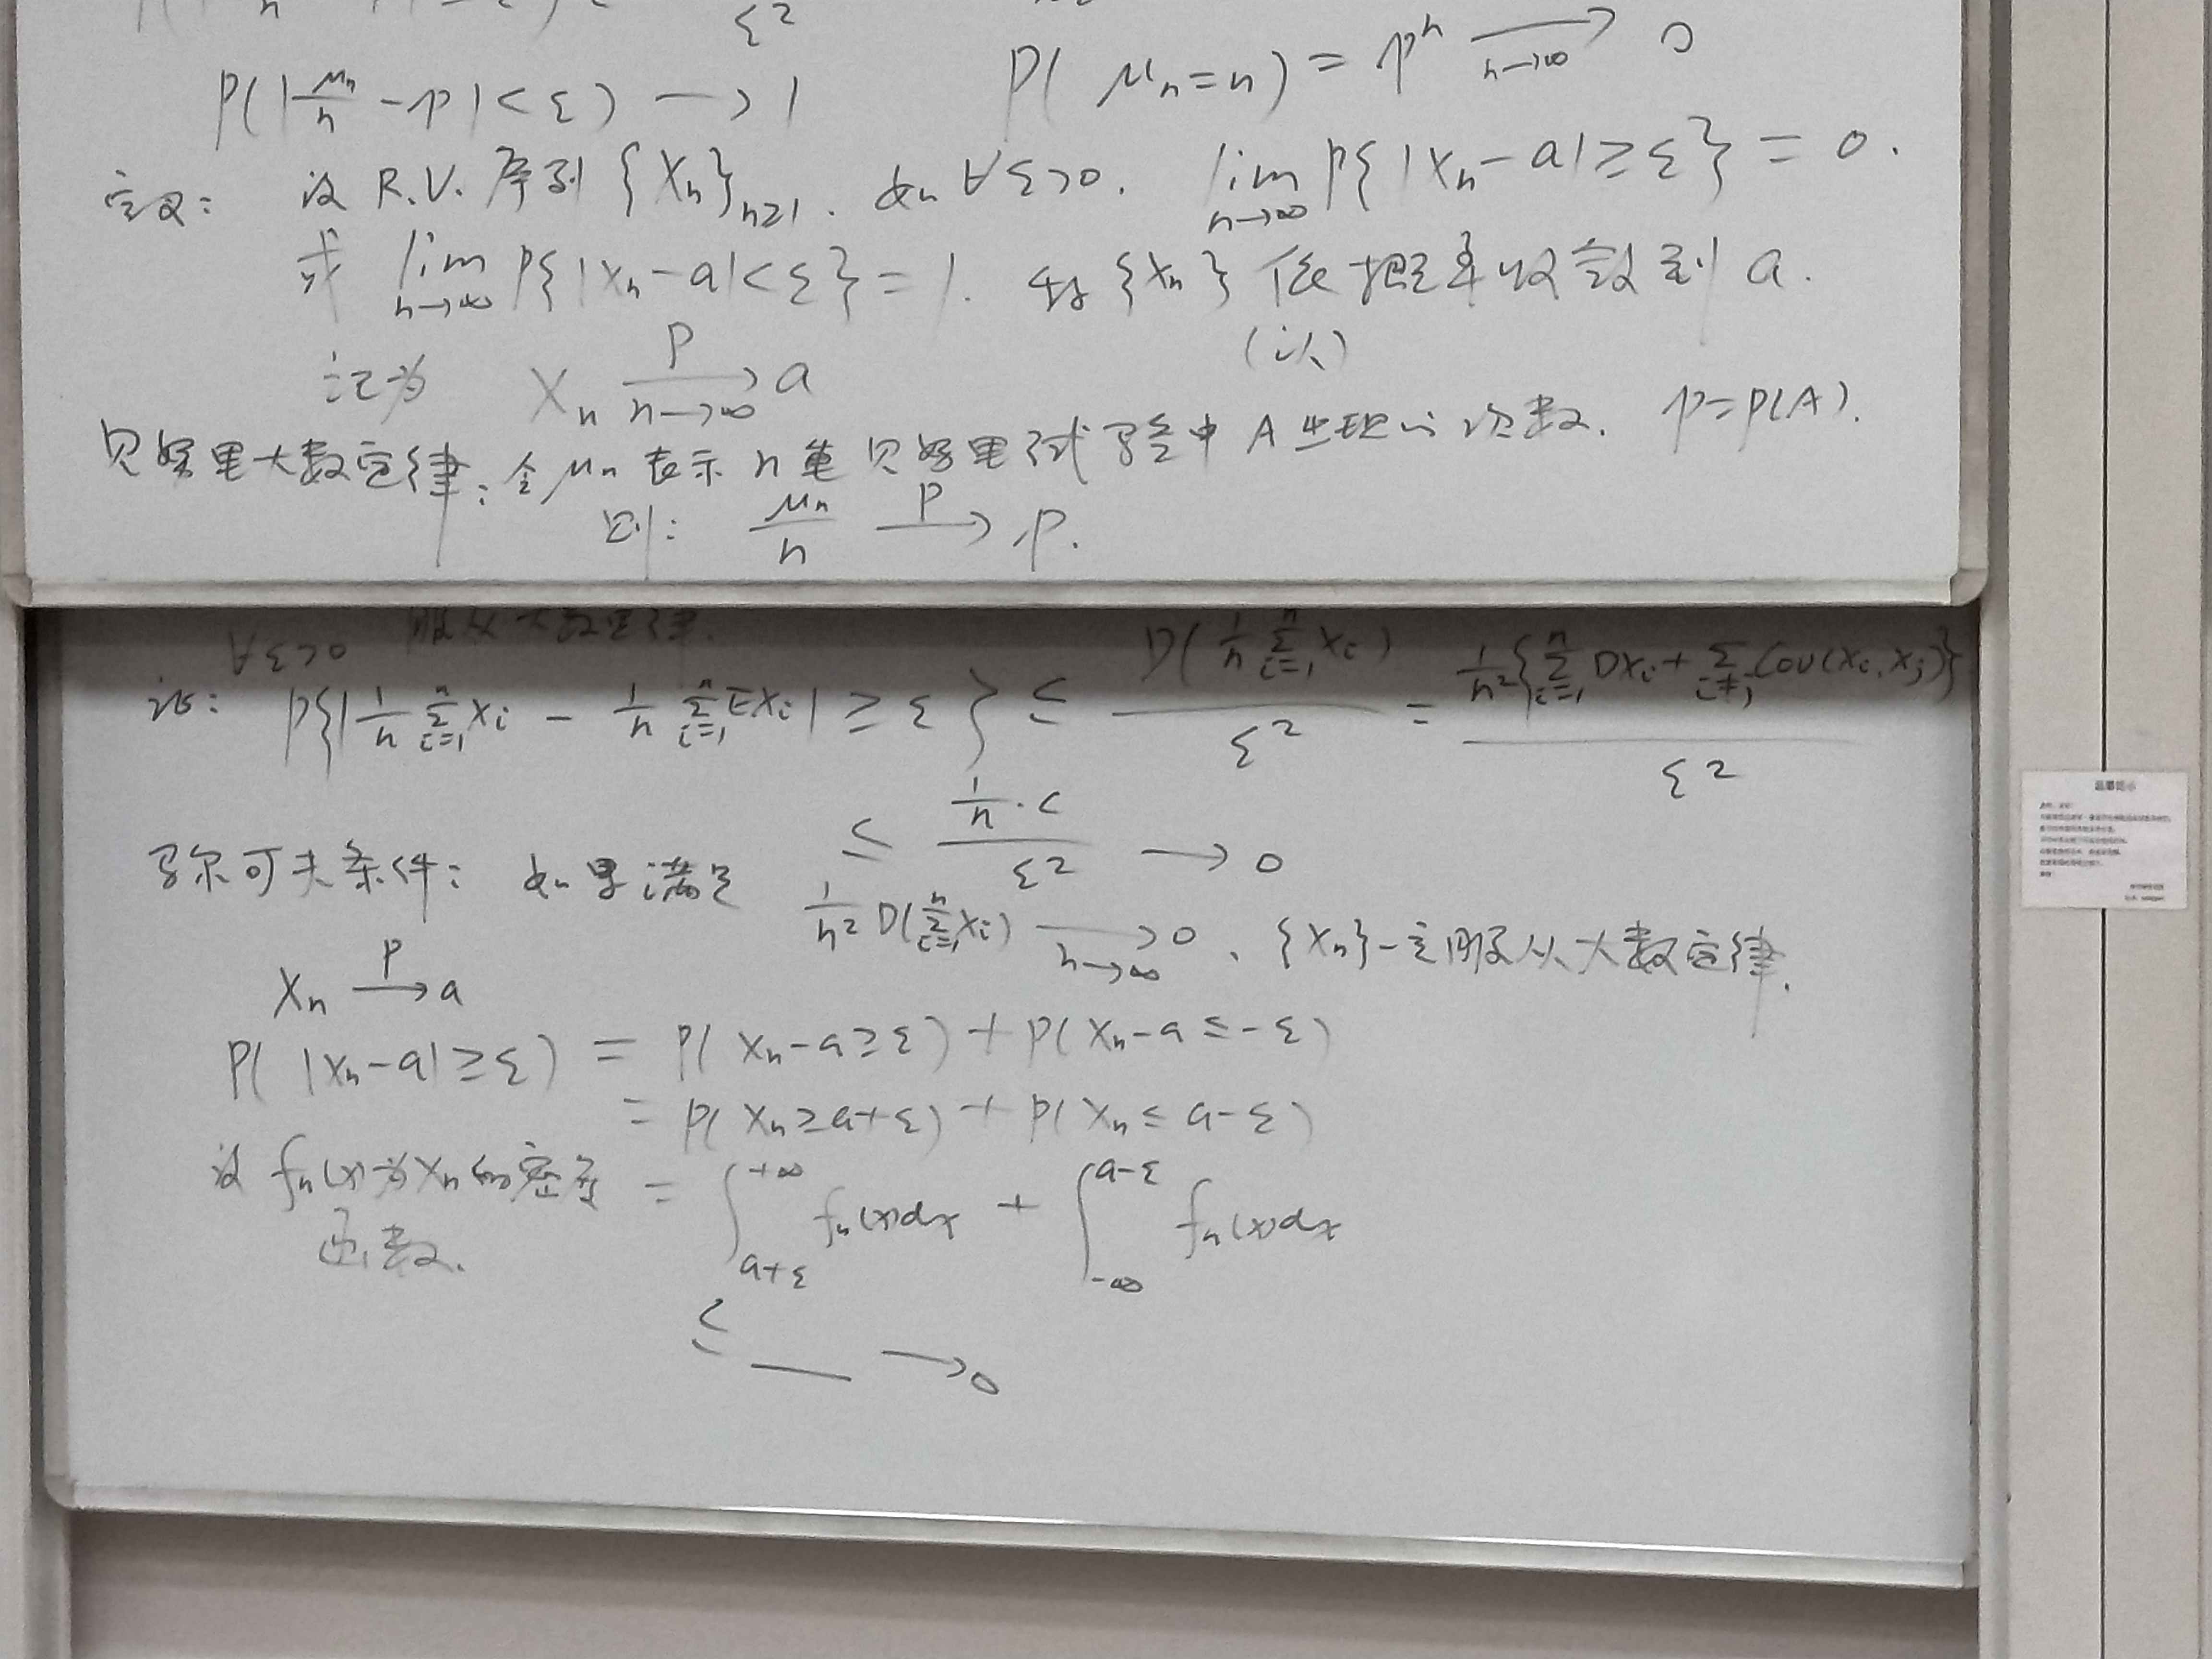 ε²
P(|μₙ/n - p| < ε) → 1
P(μₙ = n) = pⁿ →(n→∞) 0
定义: 设 R.V. 序列 {Xₙ}ₙ≥₁. 如 ∀ε>0. lim(n→∞) P{|Xₙ - a| ≥ ε} = 0.
或 lim(n→∞) P{|Xₙ - a| < ε} = 1. 称 {Xₙ} 依概率收敛到 a.
(以)
记为 Xₙ →(P, n→∞) a
贝努里大数定律: 令 μₙ 表示 n 重贝努里试验中 A 出现的次数. p=P(A).
则: μₙ/n →(P) p.
∀ε>0 服从大数定律.
证: P{|1/n Σ(i=1,n) Xᵢ - 1/n Σ(i=1,n) EXᵢ| ≥ ε} ≤ D(1/n Σ(i=1,n) Xᵢ)/ε² = 1/n²{Σ(i=1,n) DXᵢ + Σ(i≠j) Cov(Xᵢ, Xⱼ)}/ε²
≤ (1/n · c)/ε² → 0
马尔可夫条件: 如果满足 1/n² D(Σ(i=1,n) Xᵢ) →(n→∞) 0, {Xₙ}一定服从大数定律.
Xₙ →(P) a
P(|Xₙ - a| ≥ ε) = P(Xₙ - a ≥ ε) + P(Xₙ - a ≤ -ε)
= P(Xₙ ≥ a+ε) + P(Xₙ ≤ a-ε)
设 fₙ(x)为Xₙ的密度 = ∫(a+ε,+∞) fₙ(x)dx + ∫(-∞,a-ε) fₙ(x)dx
函数.
≤ __ → 0